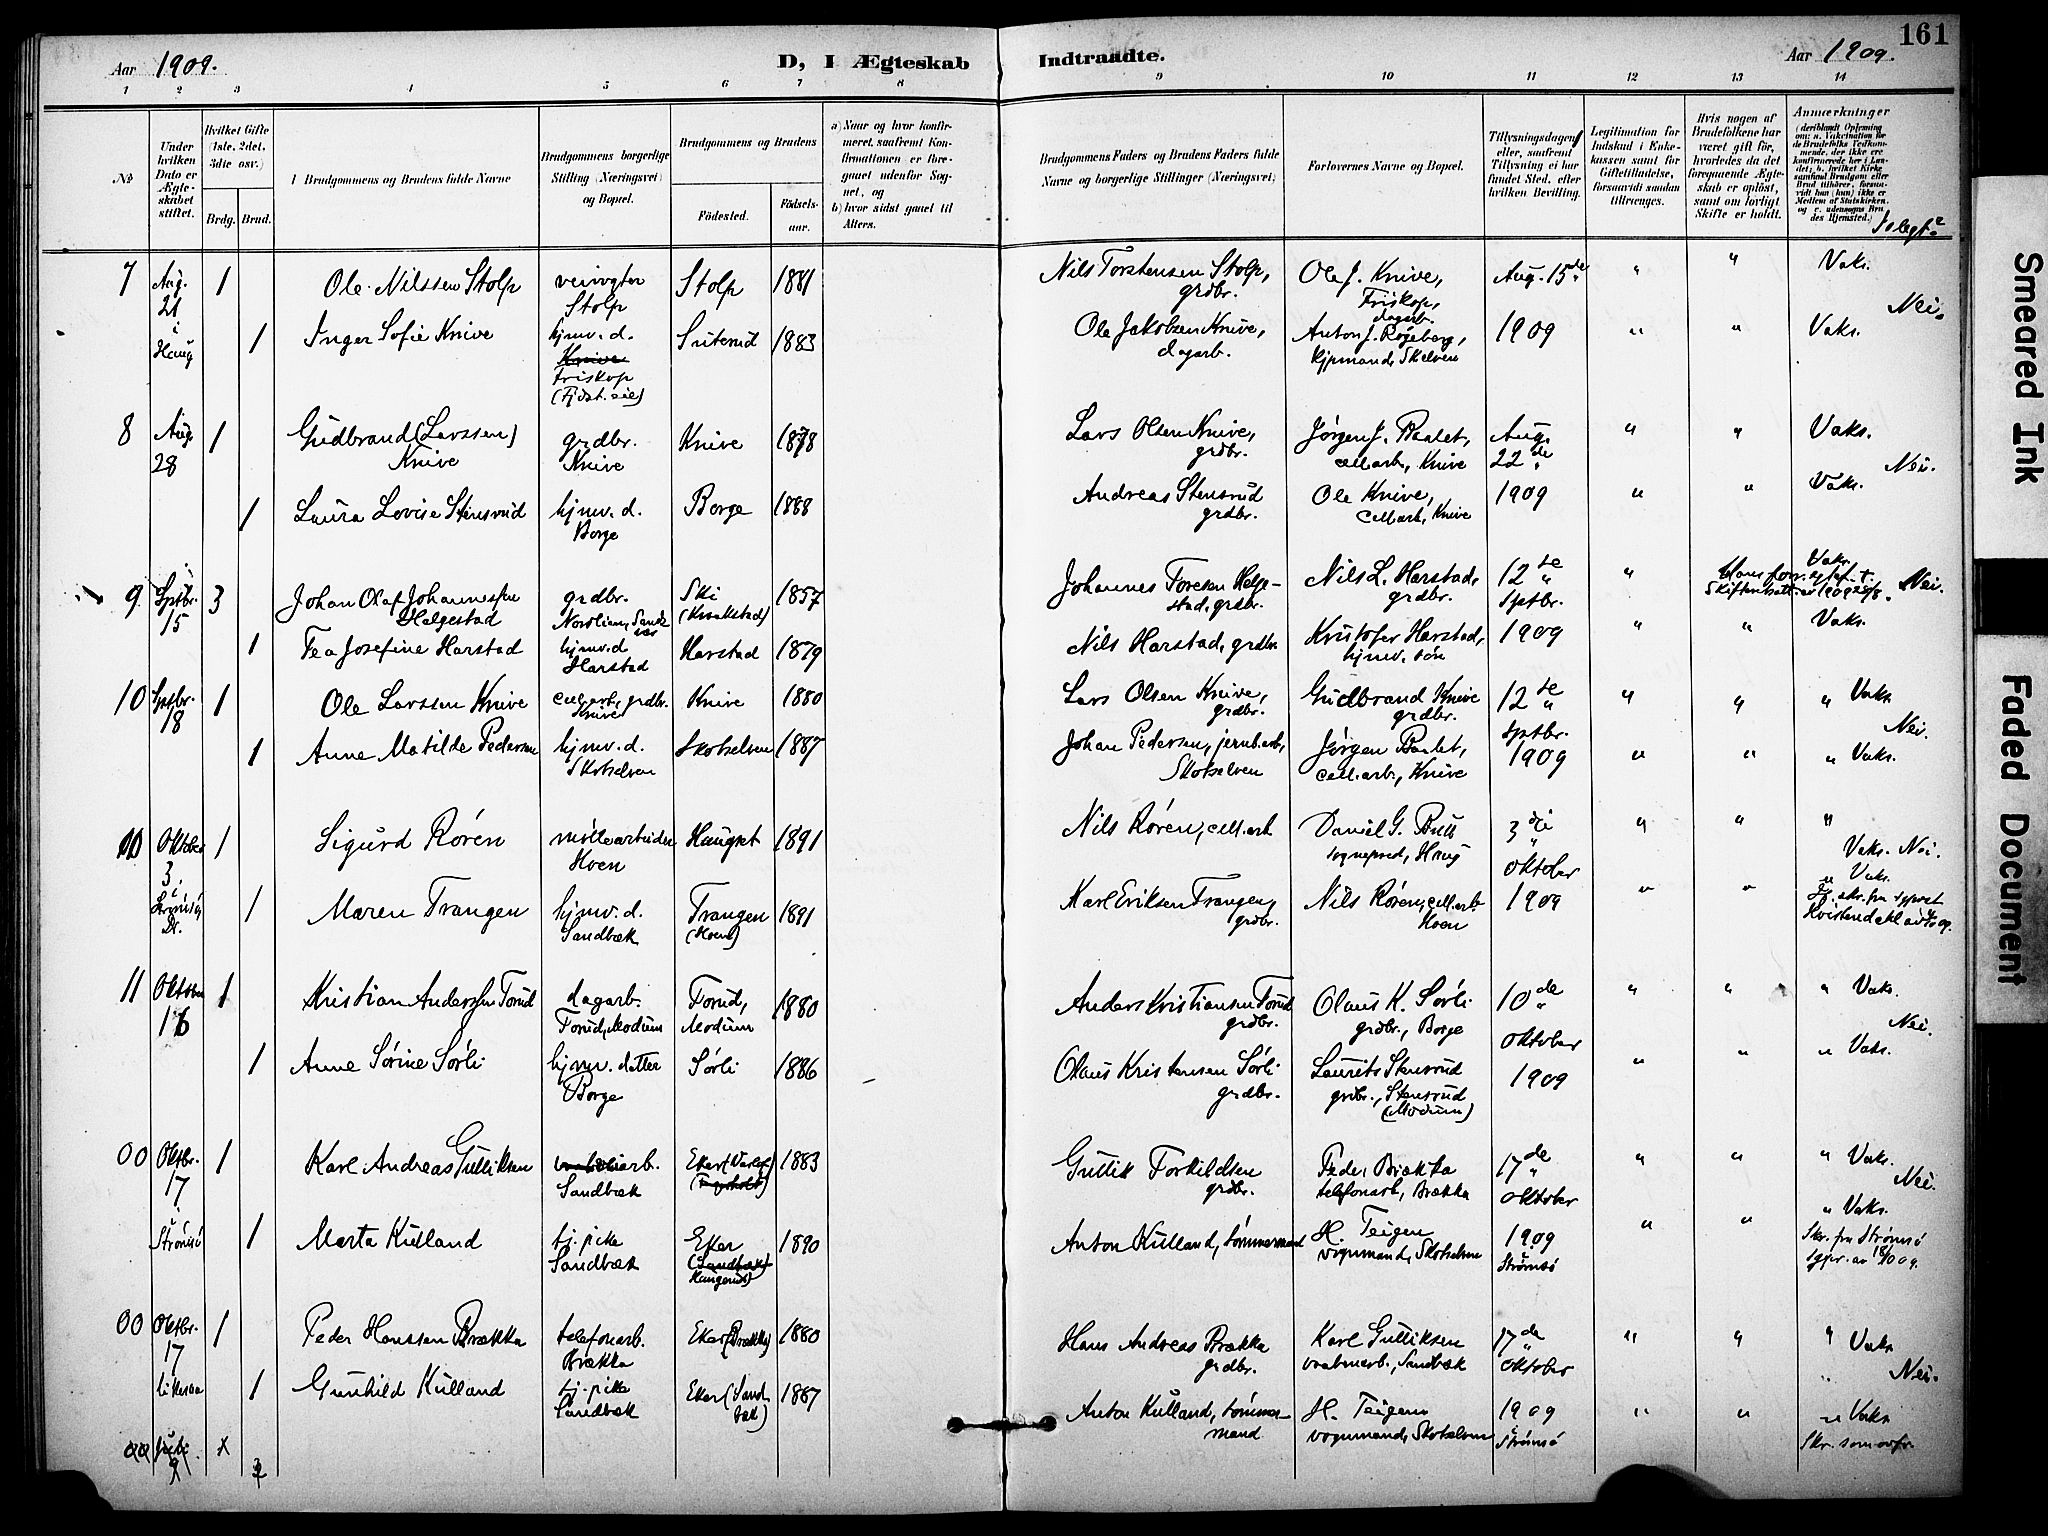 161
Aar 1909.
D, I Ægteskab
Indtraadte.
Aar 1909.
1 2 3 4 5 6 7 8
9 10 11 12 13 14
No.
Under hvilken Dato er Ægteskabet stiftet.
Hvilket Gifte (1ste, 2det, 3die osv.)
Brdg. Brud.
Brudgommens og Brudens fulde Navne
Brudgommens borgerlige Stilling (Næringsvei) og Bopæl.
Brudgommens og Brudens
Fødested.
Fødselsaar.
a) Naar og hvor konfirmeret, saafremt Konfirmationen er foregaaet udenfor Sognet, og
b) hvor sidst gaaet til Alters.
Brudgommens Faders og Brudens Faders fulde Navne og borgerlige Stillinger (Næringsvei)
Forlovernes Navne og Bopæl.
Tillysningsdagen, eller, saafremt Tillysning ei har fundet Sted, efter hvilken Bevilling.
Legitimation for Indskud i Enkekassen samt for Giftetilladelse, forsaavidt saadan tiltrænges.
Hvis nogen af Brudefolkene har været gift før, hvorledes da det foregaaende Ægteskab er opløst, samt om lovligt Skifte er holdt.
Anmærkninger
7 Aug. 21 i Haug 1 Ole Nilssen Stolp veivogter Stolp Stolp 1881 Nils Torstensen Stolp, grdbr. Ole J. Knive, Friskop, dagarb. Aug. 15de " " Vaks.
Nei.
1 Inger Sofie Knive hjmv. d. Knive Friskop Suterud 1883 Ole Jakobsen Knive, dagarb. Anton J. Røgeberg, kjpmand, Skelven 1909 " " Vaks.
8 Aug. 28 1 Gudbrand (Larssen) Knive grdbr. Knive Knive 1878 Lars Olsen Knive, grdbr. Jørgen J. Baalet, cell.arb., Knive Aug. 22de " " Vaks.
Nei.
1 Laura Lovise Stensrud hjmv. d. Borge Borge 1888 Andreas Stensrud grdbr. Ole Knive, cell.arb., Knive 1909 " " Vaks.
9 Sptbr. 15 3 Johan Olaf Johannessen Helgestad grdbr. Nordlien, Sandsvær Ski (Kraakstad) 1857 Johannes Toresen Helgestad, grdbr. Nils L. Harstad, grdbr. 12te Sptbr. " Vaks. Nei.
1 Tea Josefine Harstad hjmv. d Harstad Harstad 1879 Nils Harstad, grdbr. Kristofer Harstad, hjmv. søn 1909 " " Vaks.
10 Sptbr. 18 1 Ole Larssen Knive cell.arb., grdbr. Knive Knive 1880 Lars Olsen Knive, grdbr. Gudbrand Knive grdbr. 12te Sptbr. " " " Vaks
Nei.
1 Anne Matilde Pedersen hjmv. d. Skotselven Skotselven 1887 Johan Pedersen, jernb.arb., Skotselven Jørgen Baalet, cell.arb., Knive 1909 " " " Vaks.
00 Oktober 3 i 1 Sigurd Røren møllearbeider Hoen Haugset 1891 Nils Røren, cell.arb Daniel G. Bull sogneprest, Haug 3die oktober " " "
Vaks. Nei.
1 Maren Trangen hjmv. d. Sandbæk Trangen (Hoen) 1891 Karl Eriksen Trangen, grdbr. Nils Røren, cell.arb. Hoen 1909 " " " Vaks.
11 Oktober 16 1 Kristian Anderssen Torud dagarb. Torud, Modum Torud, Modum 1880 Anders Kristiansen Torud grdbr. Olaus K. Sørli grdbr., Borge 10de oktober " " " Vaks.
Nei.
1 Anne Sørine Sørli hjmv. datter Borge Sørli 1886 Olaus Kristensen Sørli grdbr. Laurits Stensrud grdbr., Stensrud (Modum) 1909 " " " Vaks.
00 Oktbr. 17 i Strømsø 1 Karl Andreas Gulliksen Sandbæk Eker 1883 Gullik Torkildsen grdbr. Peder Brækka telefonarb., Brækka 17de oktober " " " Vaks.
Nei.
1 Marta Kulland tj. pike Sandbæk Eker (Sandbæk) Haugerud) 1890 Anton Kulland, tømmermand H. Teigen vognmand, Skotselven 1909 i Strømsø " " " Vaks.
Skr. fra Strømsø
00 Oktbr. 17 likesaa 1 Peder Hanssen Brækka telefonarb. Brækka Eker (Brækka) 1880 Hans Andreas Brækka grdbr. Karl Gulliksen Sandbæk 17de oktober " " " Vaks
Nei.
1 Gunhild Kulland tj. pike Sandbæk Eker (Sandbæk) 1887 Anton Kulland, tømmermand H. Teigen vognmand, Skotselven 1909 i Strømsø " " " Vaks
Skr. som ovfr.
Smeared Ink
Faded Document